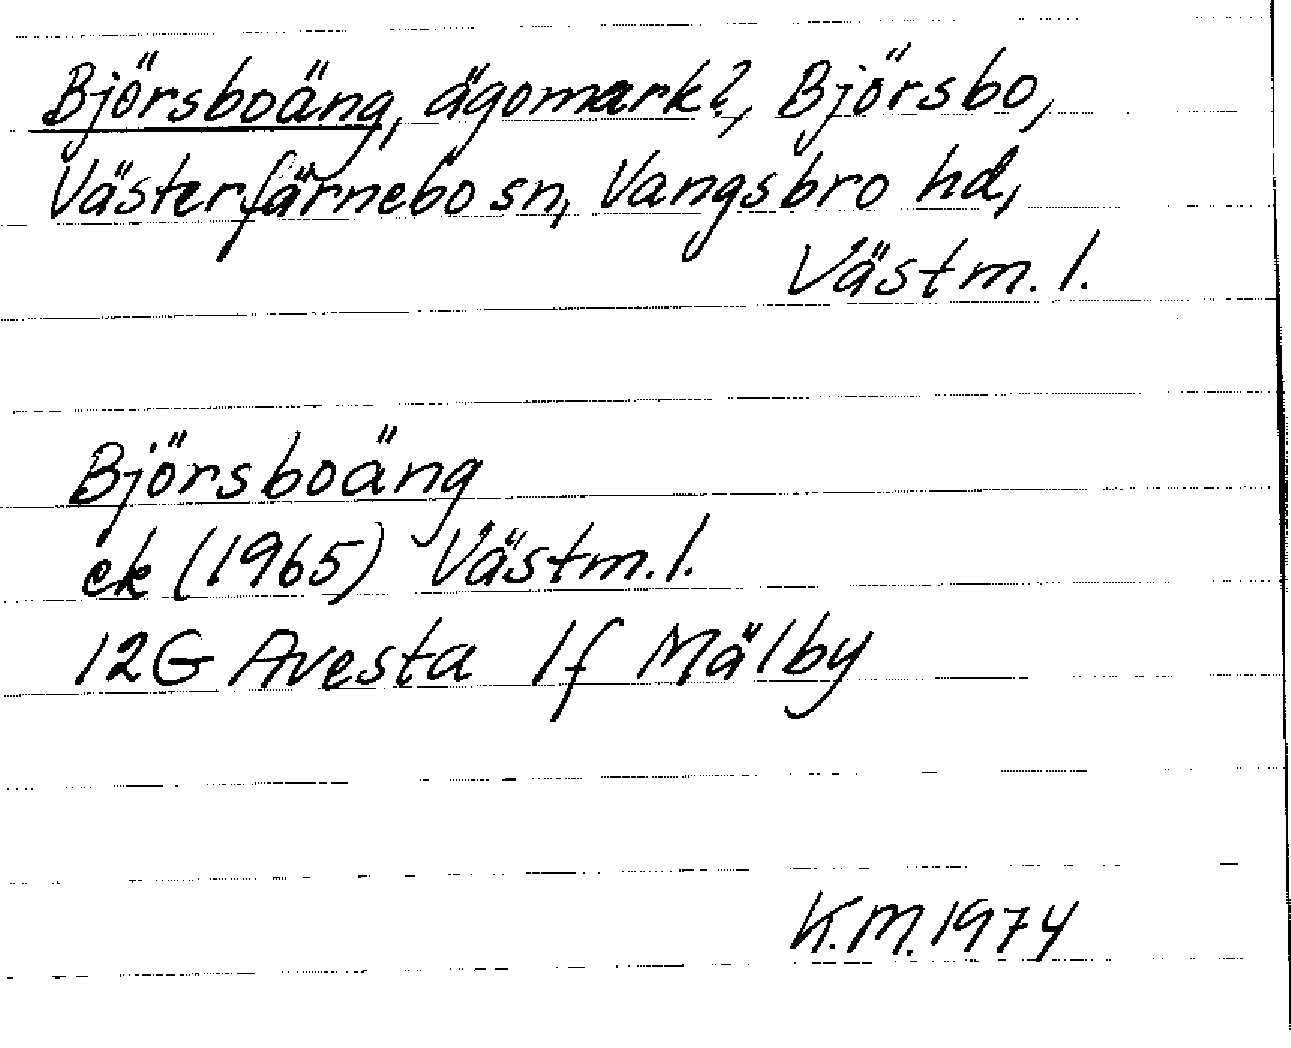 Björsboäng, ägomark?, Björsbo,
Västerfärnebo sn, Vangsbro hd,
Västm. l.
Björsboäng
ek (1965) Västm. l.
12G Avesta 1f Mälby
K.M. 1974